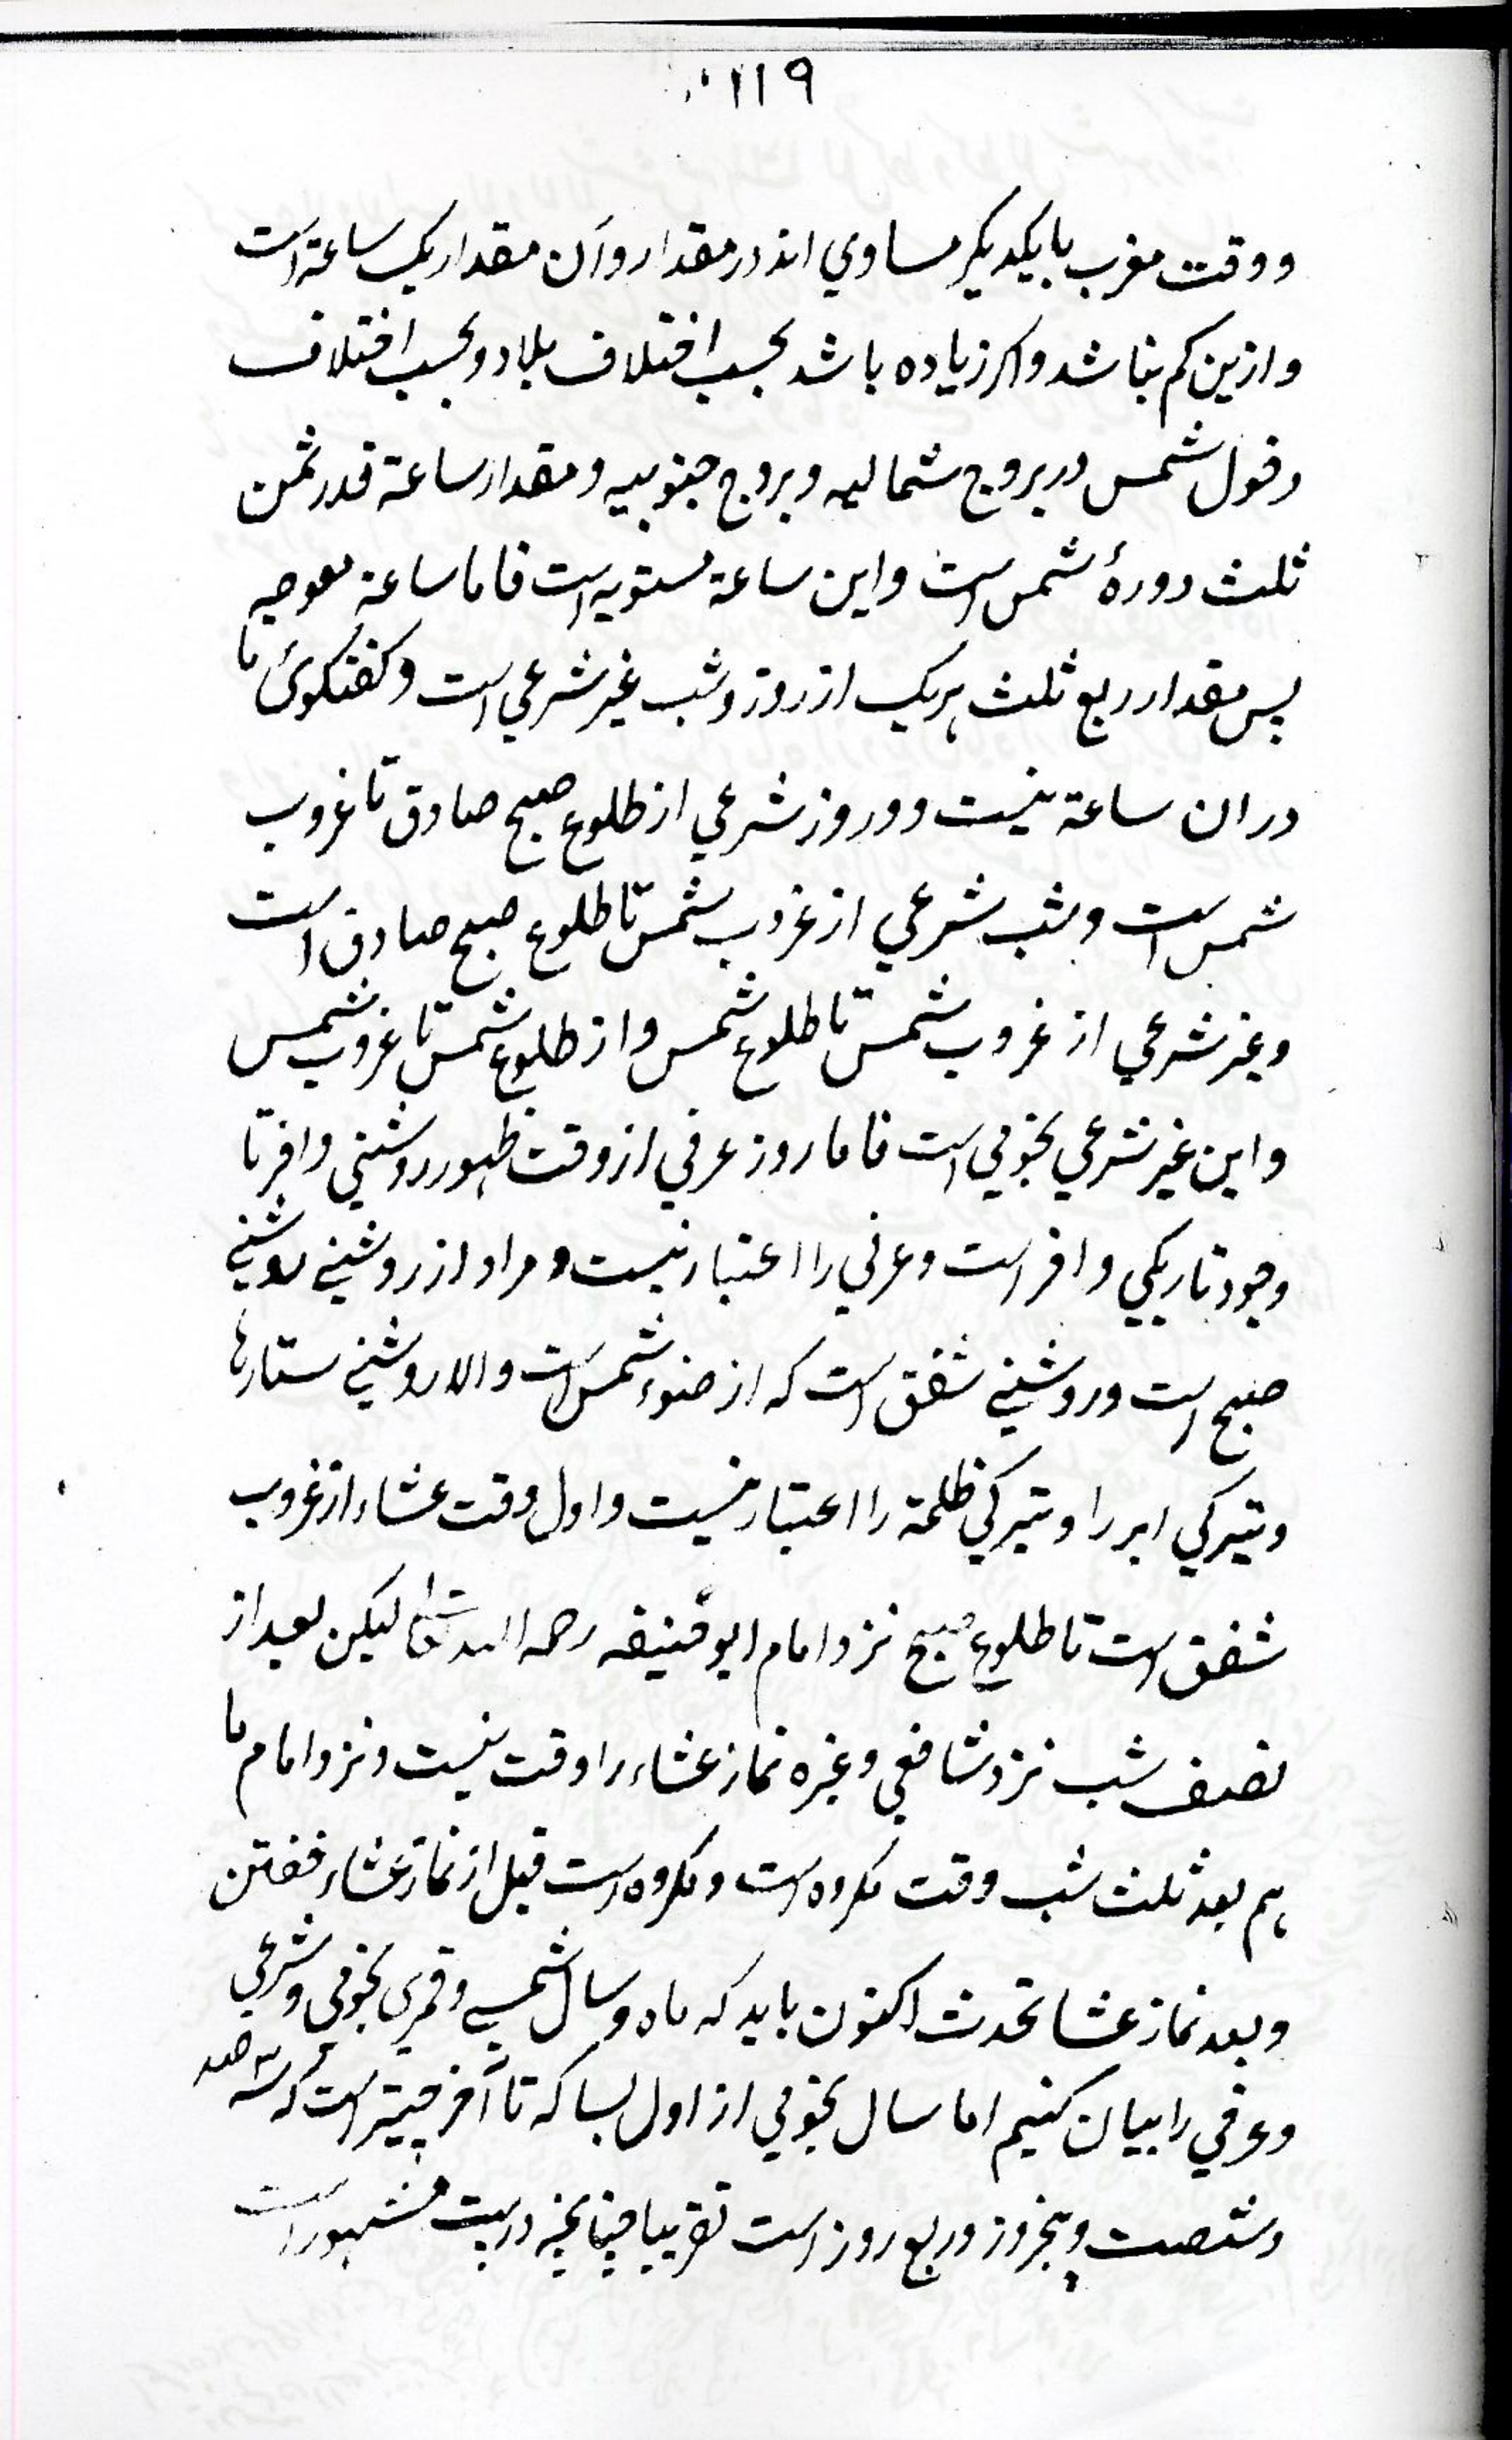 ١١٩
ووقت مغرب با یکدیگر مساوي اند در مقدار وآن مقدار یک ساعة است
وازین کم نباشد واکر زیاده باشد بحسب اختلاف بلاد وبحسب اختلاف
دخول شمس در بروج شمالیه وبروج جنوبیه ومقدار ساعة قدر ثمن
ثلث دورۀ شمس است واین ساعة مستویه است فاما ساعة معوجه
پس مقدار ربع ثلث هریک از روز وشب غیر شرعي است وکفتکوئ ما
دران ساعة نیست وروز شرعي از طلوع صبح صادق تا غروب
شمس است وشب شرعي از غروب شمس تا طلوع صبح صادق است
وغیر شرعي از غروب شمس تا طلوع شمس واز طلوع شمس تا غروب شمس
واین غیر شرعي نجومي است فاما روز عرفي از وقت ظهور روشني وافر تا
وجود تاریکي وافر است وعرفي را اعتبار نیست ومراد از روشني روشني
صبح است وروشني شفق است که از ضوء شمس است والا روشني ستارها
وتیرکي ابر را وتیرکي ظلمة را اعتبار نیست واول وقت عشاء از غروب
شفق است تا طلوع صبح نزد امام ابو حنیفه رحمه الله تعالی لیکن بعد از
نصف شب نزد شافعي وغیره نماز عشاء را وقت نیست ونزد امام ما
هم بعد ثلث شب وقت مکروه است ومکروه است قبل از نماز عشاء خفتن
وبعد نماز عشا تحدث اکنون باید که ماه وسال شمسي وقمري نجومي وشرعي
وعرفي را بیان کنیم اما سال نجومي از اول بساکه تا آخر چیتر است که سه صد
وشصت وپنجروز وربع روز است تقریبا چنانچه در بیت مشهور است